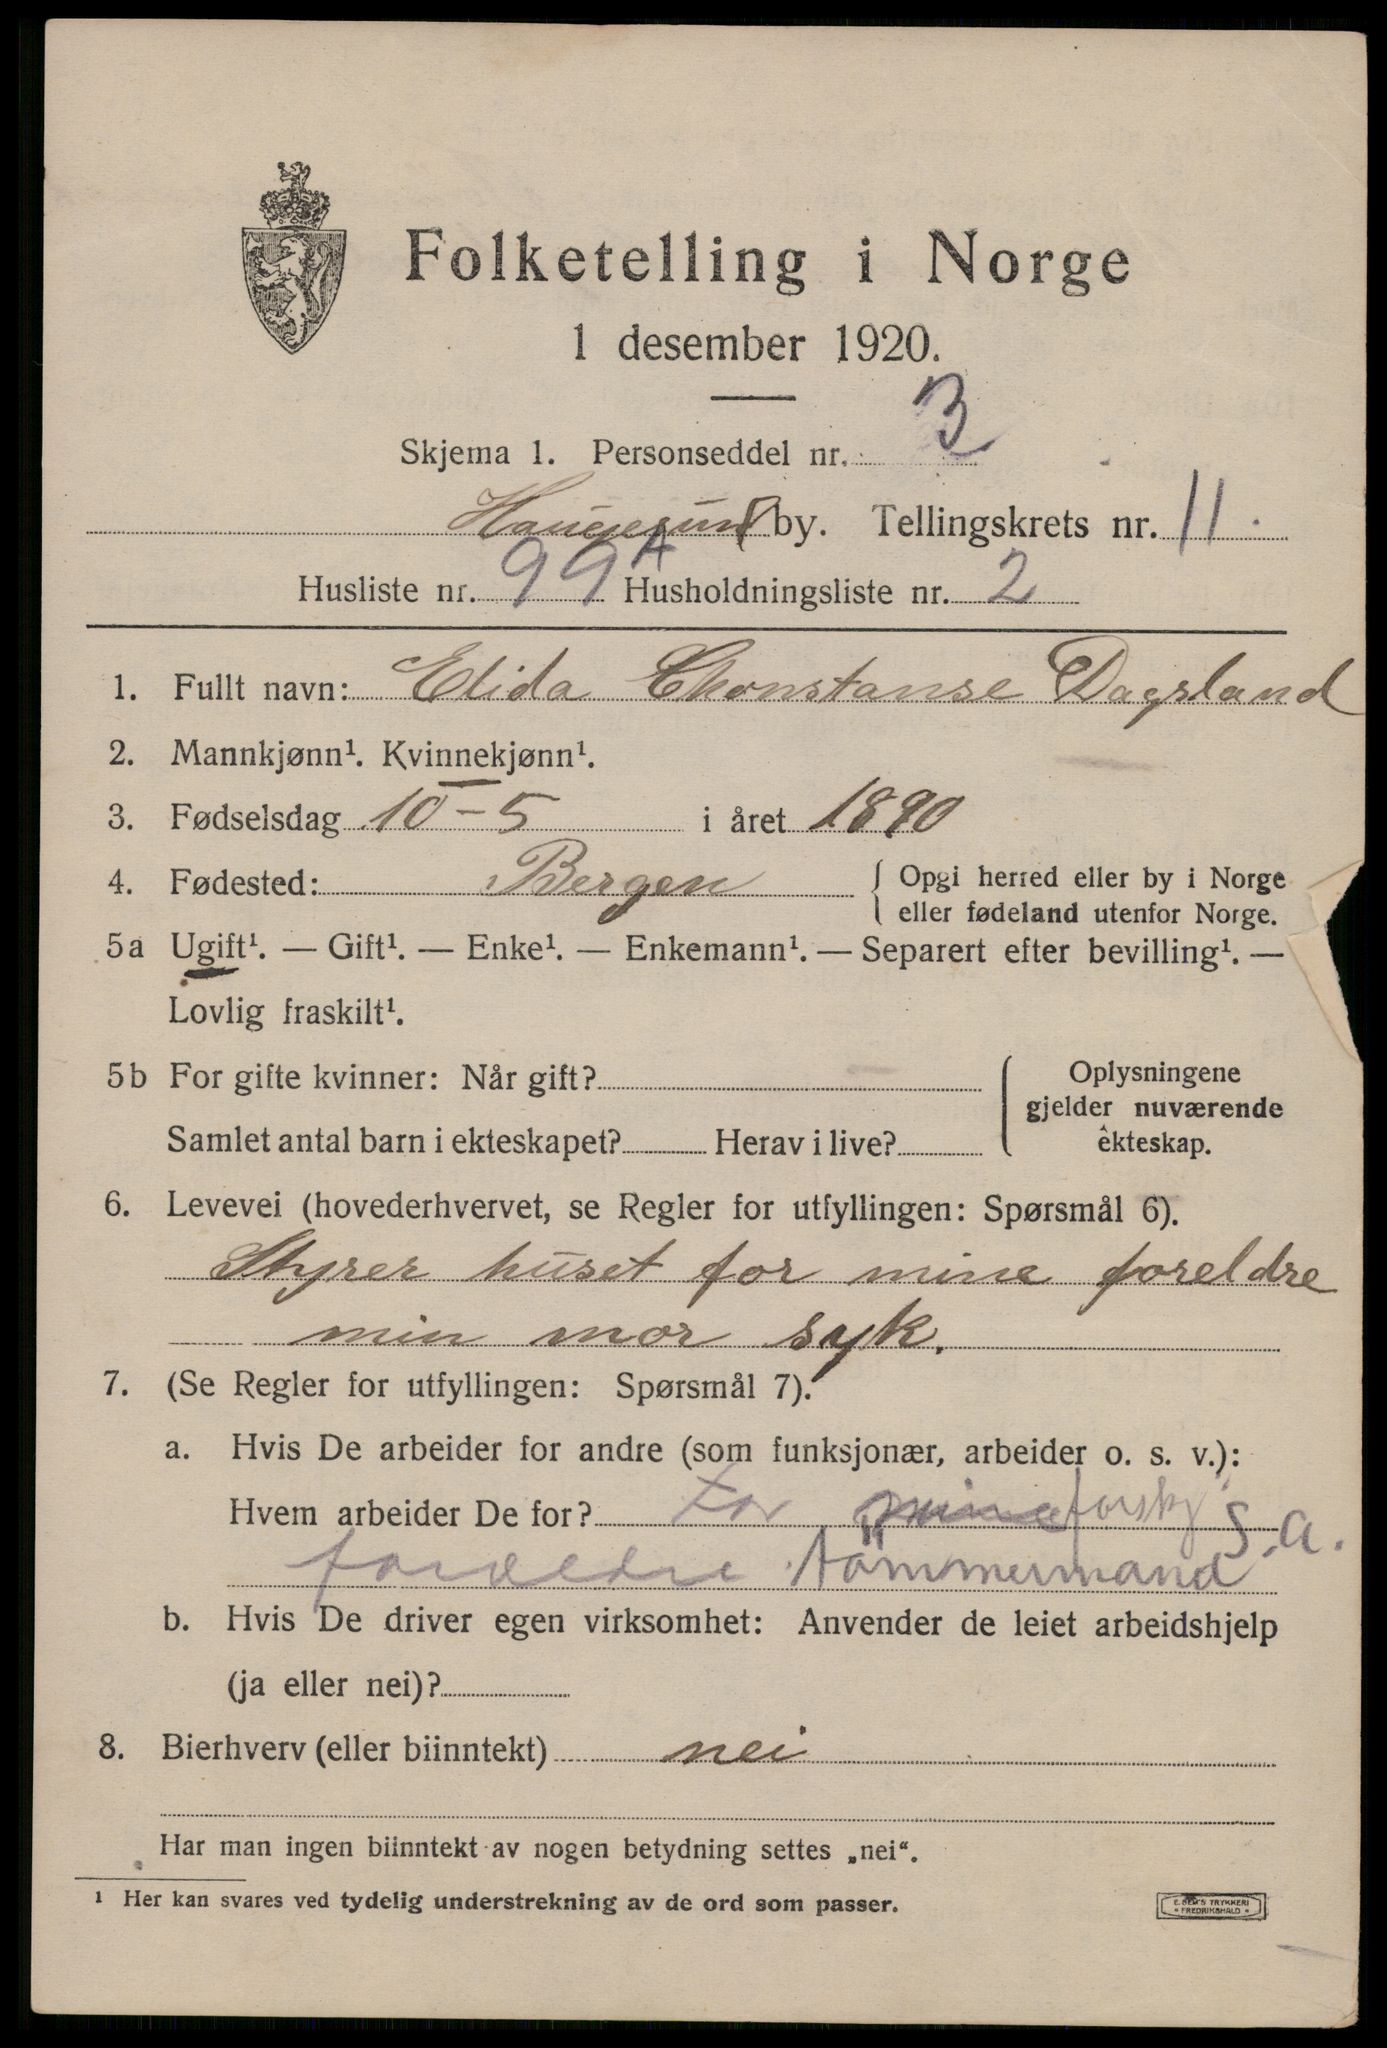 Folketelling i Norge
1 desember 1920.
Skjema 1. Personseddel nr. 3
Haugesund by. Tellingskrets nr. 11.
Husliste nr. 99A Husholdningsliste nr. 2
1. Fullt navn: Elida Chonstanse Dagsland
2. Mannkjønn¹. Kvinnekjønn¹.
3. Fødselsdag 10-5 i året 1890
4. Fødested: Bergen { Opgi herred eller by i Norge
eller fødeland utenfor Norge.
5a Ugift¹. — Gift¹. — Enke¹. — Enkemann¹. — Separert efter bevilling¹. —
Lovlig fraskilt¹.
5b For gifte kvinner: Når gift? { Oplysningene
gjelder nuværende
Samlet antal barn i ekteskapet? Herav i live? ekteskap.
6. Levevei (hovederhvervet, se Regler for utfyllingen: Spørsmål 6).
Styrer huset for mine foreldre
min mor syk.
7. (Se Regler for utfyllingen: Spørsmål 7).
a. Hvis De arbeider for andre (som funksjonær, arbeider o. s. v.):
Hvem arbeider De for? For mine forsky S.a.
foreldre. tömmermand
b. Hvis De driver egen virksomhet: Anvender de leiet arbeidshjelp
(ja eller nei)?
8. Bierhverv (eller biinntekt) nei
Har man ingen biinntekt av nogen betydning settes „nei“.
¹ Her kan svares ved tydelig understrekning av de ord som passer.
E. SEM'S TRYKKERI
* FREDRIKSHALD *